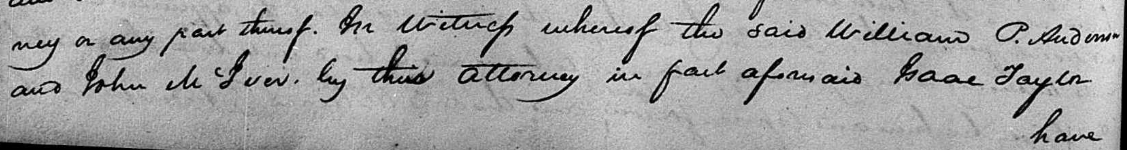 ney or any part thereof. In Witness whereof the said William P. Anderson
and John McIver. by their Attorney in fact aforesaid Isaac Taylor
have